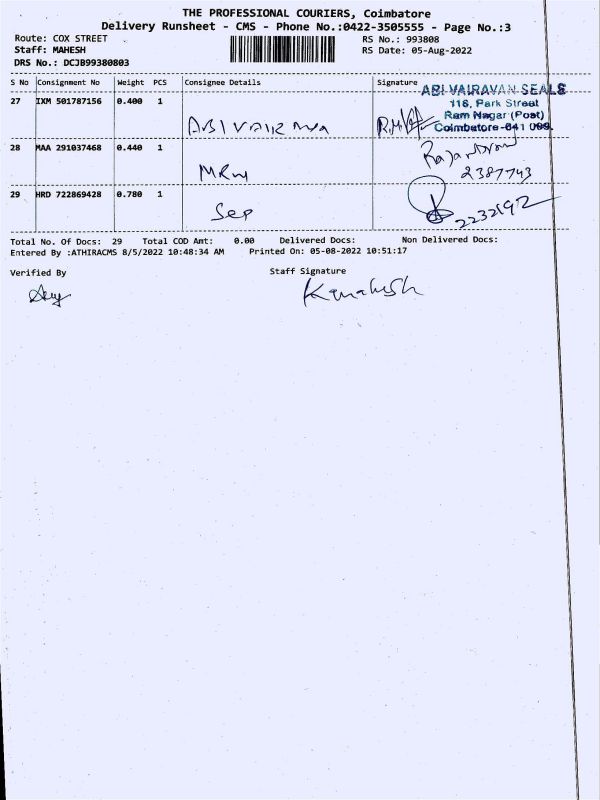 THE PROFESSIONAL COURIERS, Coimbatore
Delivery Runsheet - CMS - Phone No.:0422-3505555 - Page No.:3
Route: COX STREET RS No.: 993808
Staff: MAHESH RS Date: 05-Aug-2022
DRS No.: DCJB99380803
S No Consignment No Weight PCS Consignee Details Signature
ABI VAIRAVAN SEALS
27 IXM 501787156 0.400 1
116, Park Street
Ram Nagar (Post)
Coimbatore-641 009.
ABI VAIRAVA
28 MAA 291037468 0.440 1
2387743
MRW
29 HRD 722869428 0.780 1
Sep
2232192
Total No. Of Docs: 29 Total COD Amt: 0.00 Delivered Docs: Non Delivered Docs:
Entered By :ATHIRACMS 8/5/2022 10:48:34 AM Printed On: 05-08-2022 10:51:17
Verified By Staff Signature